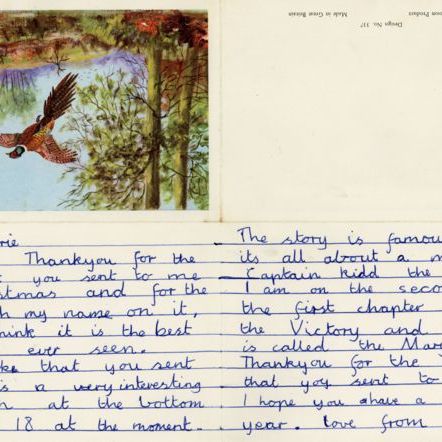 Made in Great Britain
Design No.
Product
Thankyou for the
you sent to me
stmas and for the
h my name on it,
hink it is the best
ever seen.
that you sent
is a very interesting
at the bottom
18 at the moment.
The story is famou
its all about a m
Captain kidd the
I am on the seco
the first chapter
the Victory and
is called the Mar
Thankyou for the
that yoy sent to
I hope you ahave a
year. love from